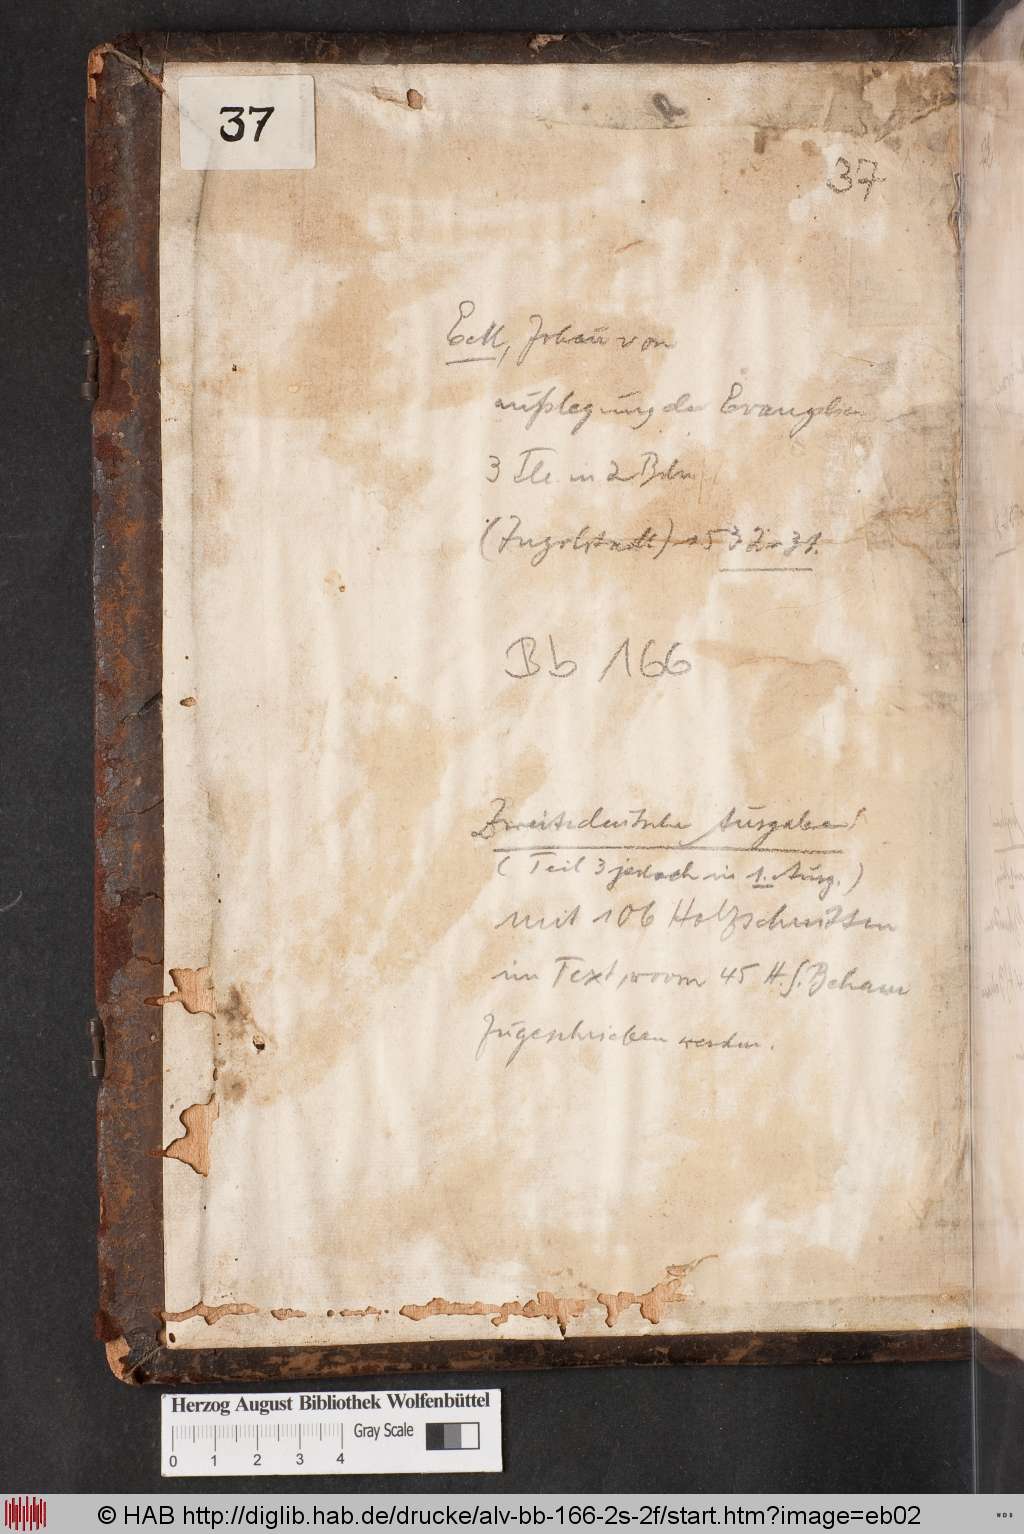 37
37
Eck, Johan von
außlegung der Evangelien
3 Tle in 2 Bdn
(Ingolstadt) 1532-31.
Bb 166
Zweite deutsche Ausgabe!
(Teil 3 jedoch in 1. Ausg.)
mit 106 Holzschnitten
im Text, wovon 45 H. S. Beham
zugeschrieben werden.
Herzog August Bibliothek Wolfenbüttel
Gray Scale
0 1 2 3 4
© HAB http://diglib.hab.de/drucke/alv-bb-166-2s-2f/start.htm?image=eb02